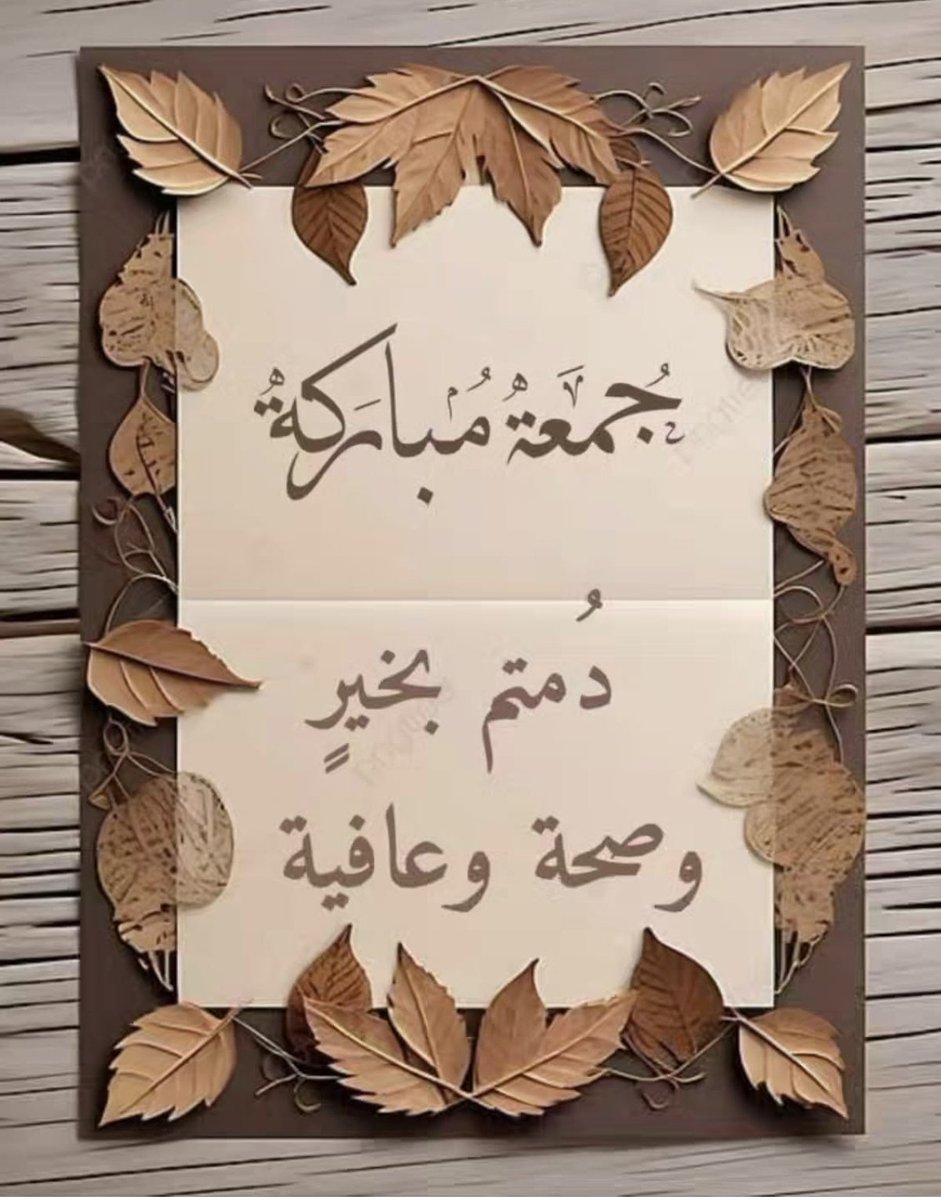 جُمعَةُ مُباركَةُ
دُمتم بخيرٍ
وصحة وعافية